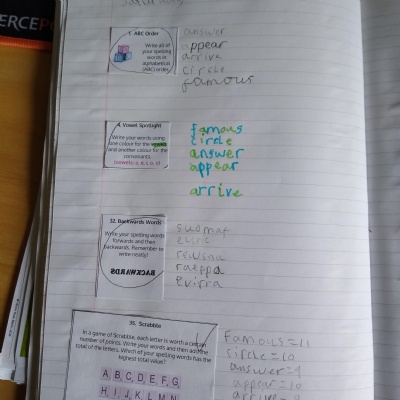 ERCE
1. ABC Order
Write all of your spelling words in alphabetical (ABC) order.
answer
appear
arrive
circle
famous
4. Vowel Spotlight
Write your words using one colour for the vowels and another colour for the consonants.
(vowels: a, e, i, o, u)
famous
circle
answer
appear
arrive
32. Backwards Words
Write your spelling words forwards and then backwards. Remember to write neatly!
BACKWARDS
suomaf
rewsna
raeppa
evirra
35. Scrabble
In a game of Scrabble, each letter is worth a certain number of points. Write your words and then add the total of the letters. Which of your spelling words has the highest total value?
A B C D E F G
H I J K L M N
Famous = 11
circle = 10
answer =
appear = 10
arrive =